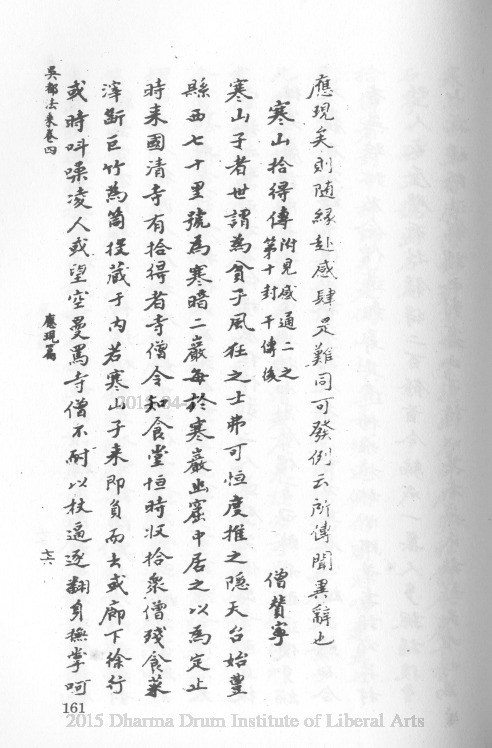 應現矣則随緣赴感肆是難同可發例云所傳聞異辭也
寒山拾得傳 附見感通二之第十封干傳後 僧贊寧
寒山子者世謂為貧子風狂之士弗可恒度推之隐天台始豊
縣西七十里號為寒暗二巖每於寒巖幽窟中居之以為定止
時来國清寺有拾得者寺僧令知食堂恒時収拾衆僧殘食菜
滓斷巨竹為筒投藏于内若寒山子来即負而去或廊下徐行
或時叫噪凌人或望空曼罵寺僧不耐以杖逼逐翻身撫掌呵
吳都法乘卷四 應現篇 六六
161
2015 Dharma Drum Institute of Liberal Arts